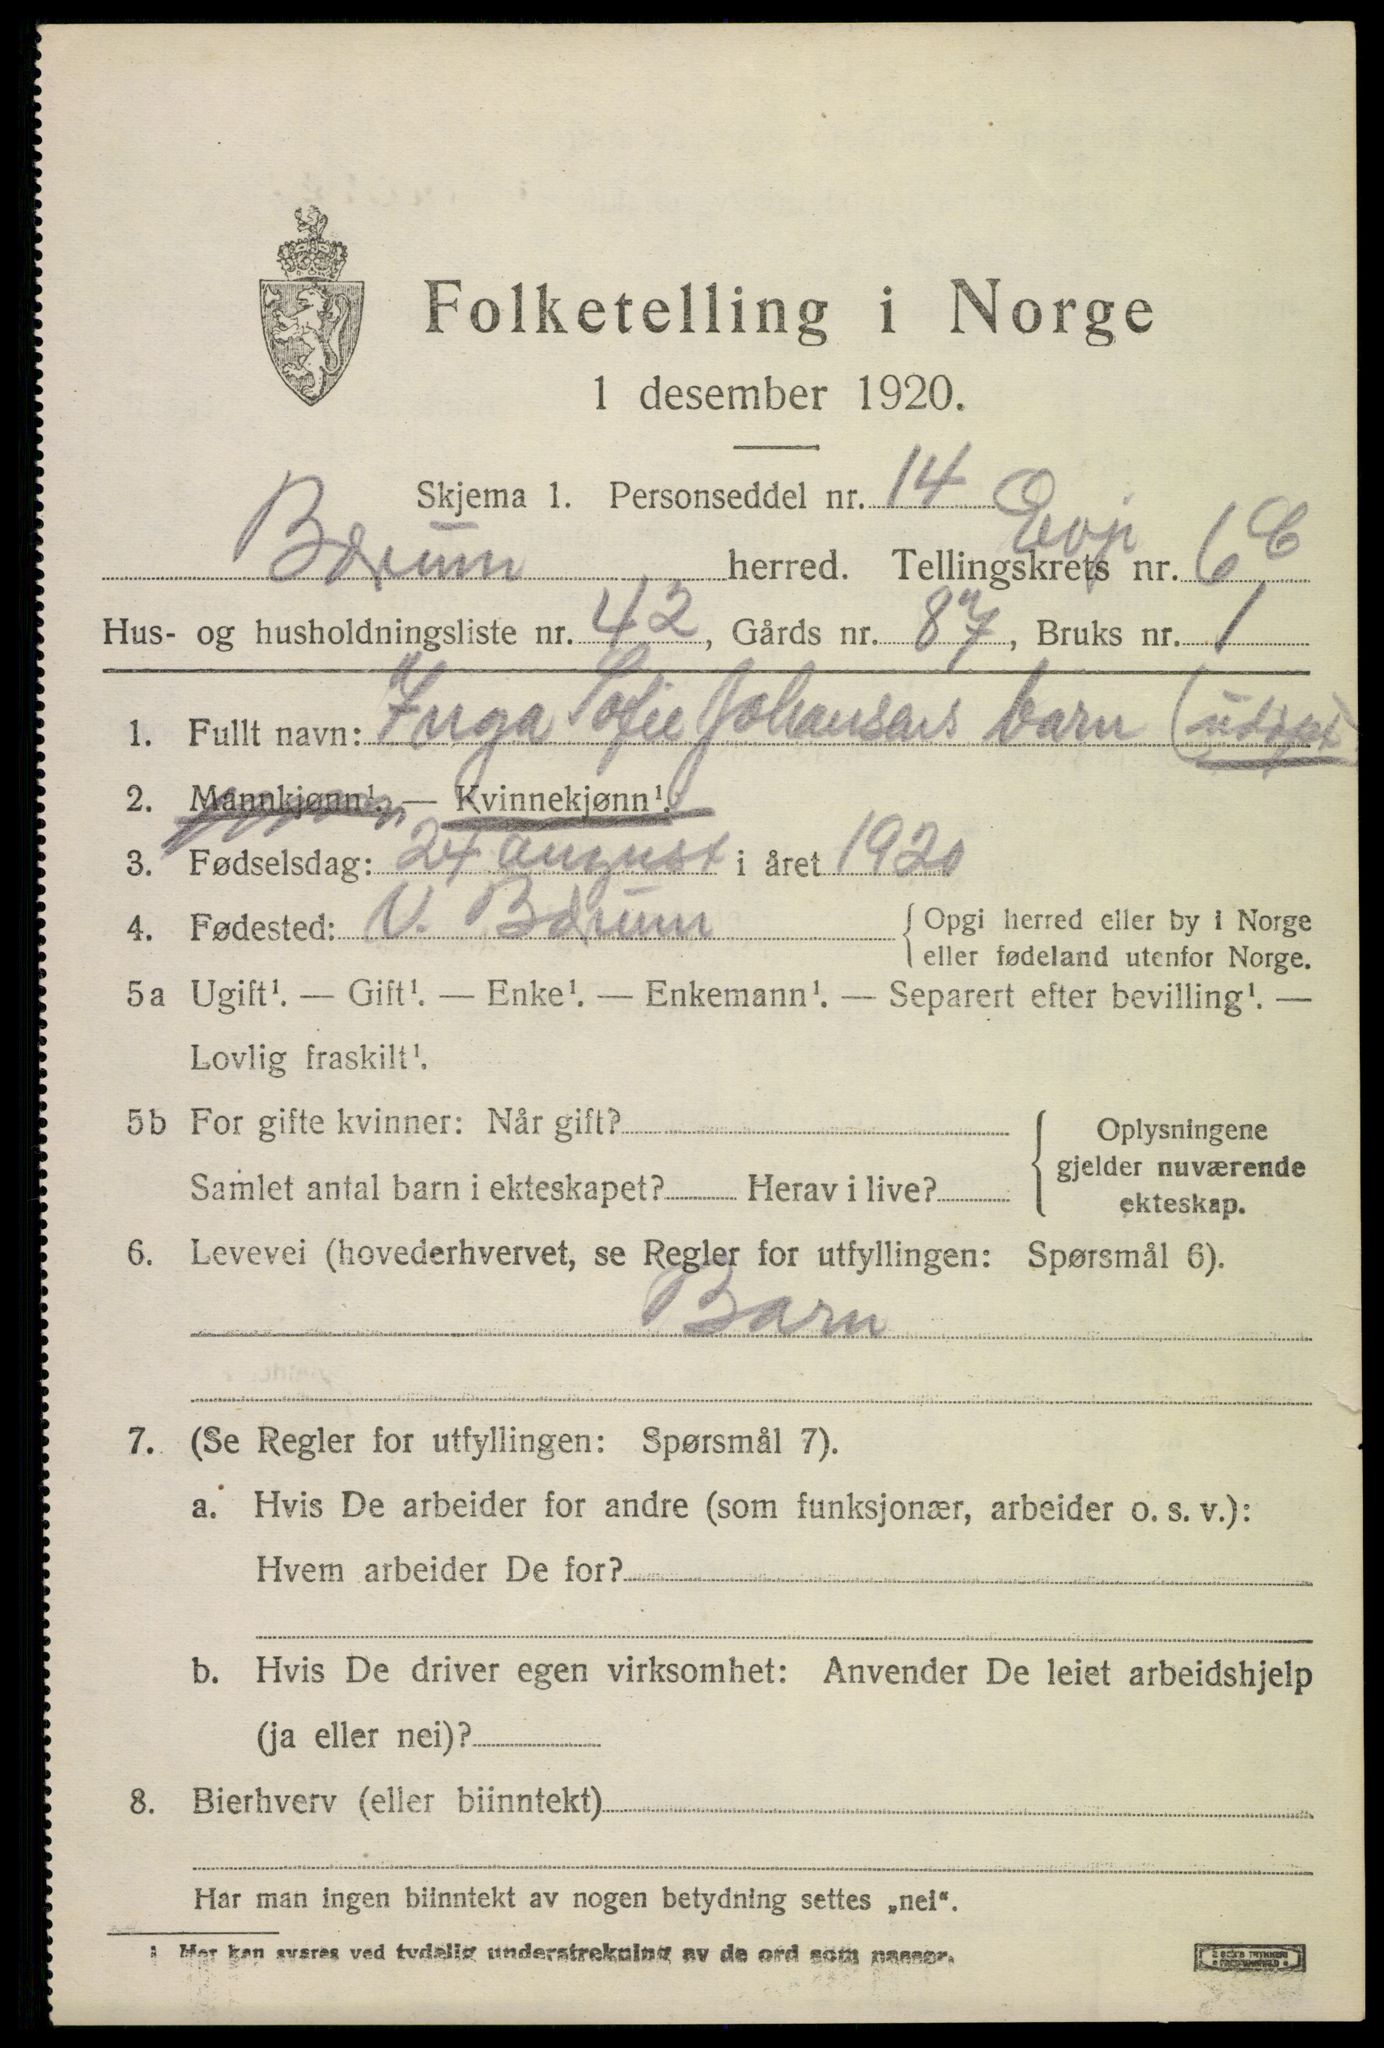 Folketelling i Norge
1 desember 1920.
Skjema 1. Personseddel nr. 14
Bærum herred. Tellingskrets nr. 6
Hus- og husholdningsliste nr. 42, Gårds nr. 87, Bruks nr. 1
1. Fullt navn: Inga Sofie Johansens barn (udøpt)
2. Mannkjønn¹. — Kvinnekjønn¹.
3. Fødselsdag: 24 august i året 1920
4. Fødested: V. Bærum { Opgi herred eller by i Norge
eller fødeland utenfor Norge.
5a Ugift¹. — Gift¹. — Enke¹. — Enkemann¹. — Separert efter bevilling¹. —
Lovlig fraskilt¹.
5b For gifte kvinner: Når gift? { Oplysningene
gjelder nuværende
Samlet antal barn i ekteskapet? Herav i live? ekteskap.
6. Levevei (hovederhvervet, se Regler for utfyllingen: Spørsmål 6).
Barn
7. (Se Regler for utfyllingen: Spørsmål 7).
a. Hvis De arbeider for andre (som funksjonær, arbeider o. s. v.):
Hvem arbeider De for?
b. Hvis De driver egen virksomhet: Anvender De leiet arbeidshjelp
(ja eller nei)?
8. Bierhverv (eller biinntekt)
Har man ingen biinntekt av nogen betydning settes „nei“.
¹ Her kan svares ved tydelig understrekning av de ord som passer.